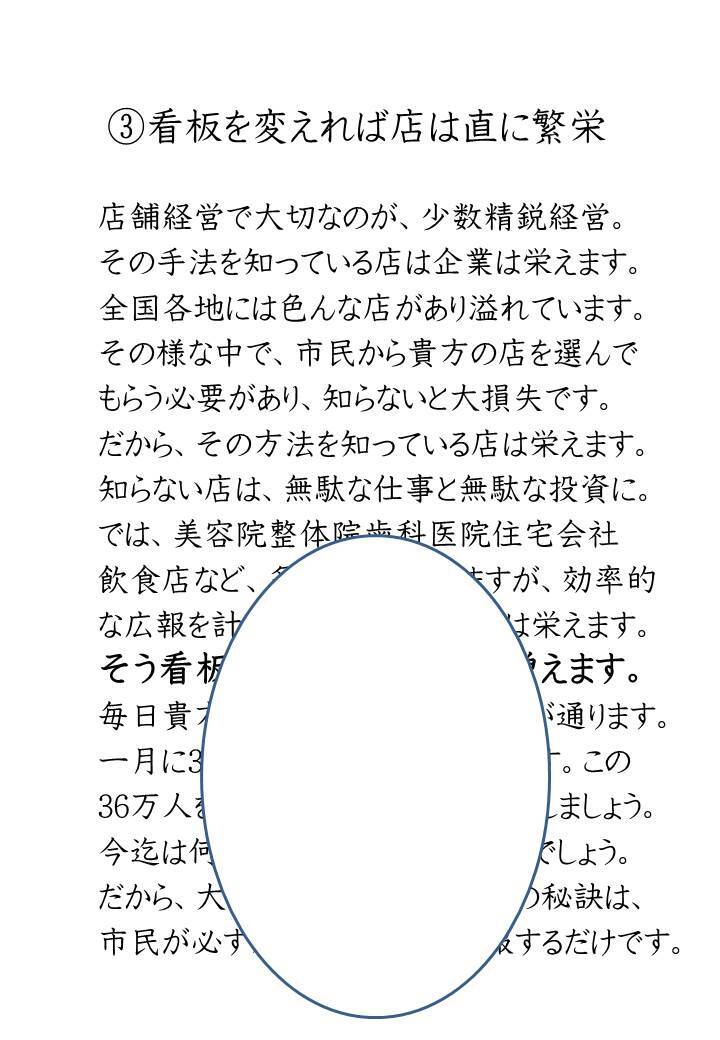 ③看板を変えれば店は直に繁栄
店舗経営で大切なのが、少数精鋭経営。
その手法を知っている店は企業は栄えます。
全国各地には色んな店があり溢れています。
その様な中で、市民から貴方の店を選んで
もらう必要があり、知らないと大損失です。
だから、その方法を知っている店は栄えます。
知らない店は、無駄な仕事と無駄な投資に。
では、美容院整体院歯科医院住宅会社
飲食店など、 ますが、効率的
な広報を計 は栄えます。
そう看板 増えます。
毎日貴方 が通ります。
一月に3 す。この
36万人を しましょう。
今迄は何 でしょう。
だから、大 の秘訣は、
市民が必ず 報するだけです。